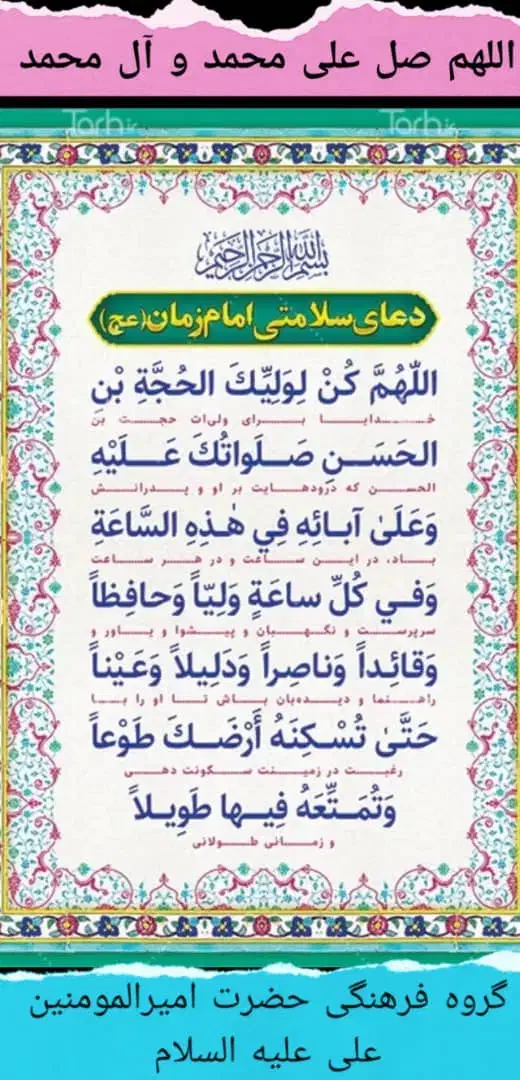 اللهم صل علی محمد و آل محمد
Tarh.ir Tarh.ir
بسم الله الرحمن الرحیم
دعای سلامتی امام زمان (عج)
اللّهُمَّ كُنْ لِوَلِيِّكَ الحُجَّةِ بْنِ
خدایا برای ولی‌ات حجت بن
الحَسَـنِ صَـلَواتُكَ عَـلَيْهِ
الحسن که درودهایت بر او و پدرانش
وَعَلىٰ آبائِهِ فِي هٰذِهِ السَّاعَةِ
باد، در این ساعت و در هر ساعت
وَفـي كُلِّ ساعَةٍ وَلِيّاً وَحافِظاً
سرپرست و نگهبان و پیشوا و یاور و
وَقائِداً وَناصِراً وَدَلِيلاً وَعَيْناً
راهنما و دیده‌بان باش تا او را با
حَتَّىٰ تُسْـكِنَهُ أَرْضَـكَ طَوْعاً
رغبت در زمینت سکونت دهی
وَتُمَـتِّعَهُ فِيـها طَوِيـلاً
و زمانی طولانی
گروه فرهنگی حضرت امیرالمومنین
علی علیه السلام